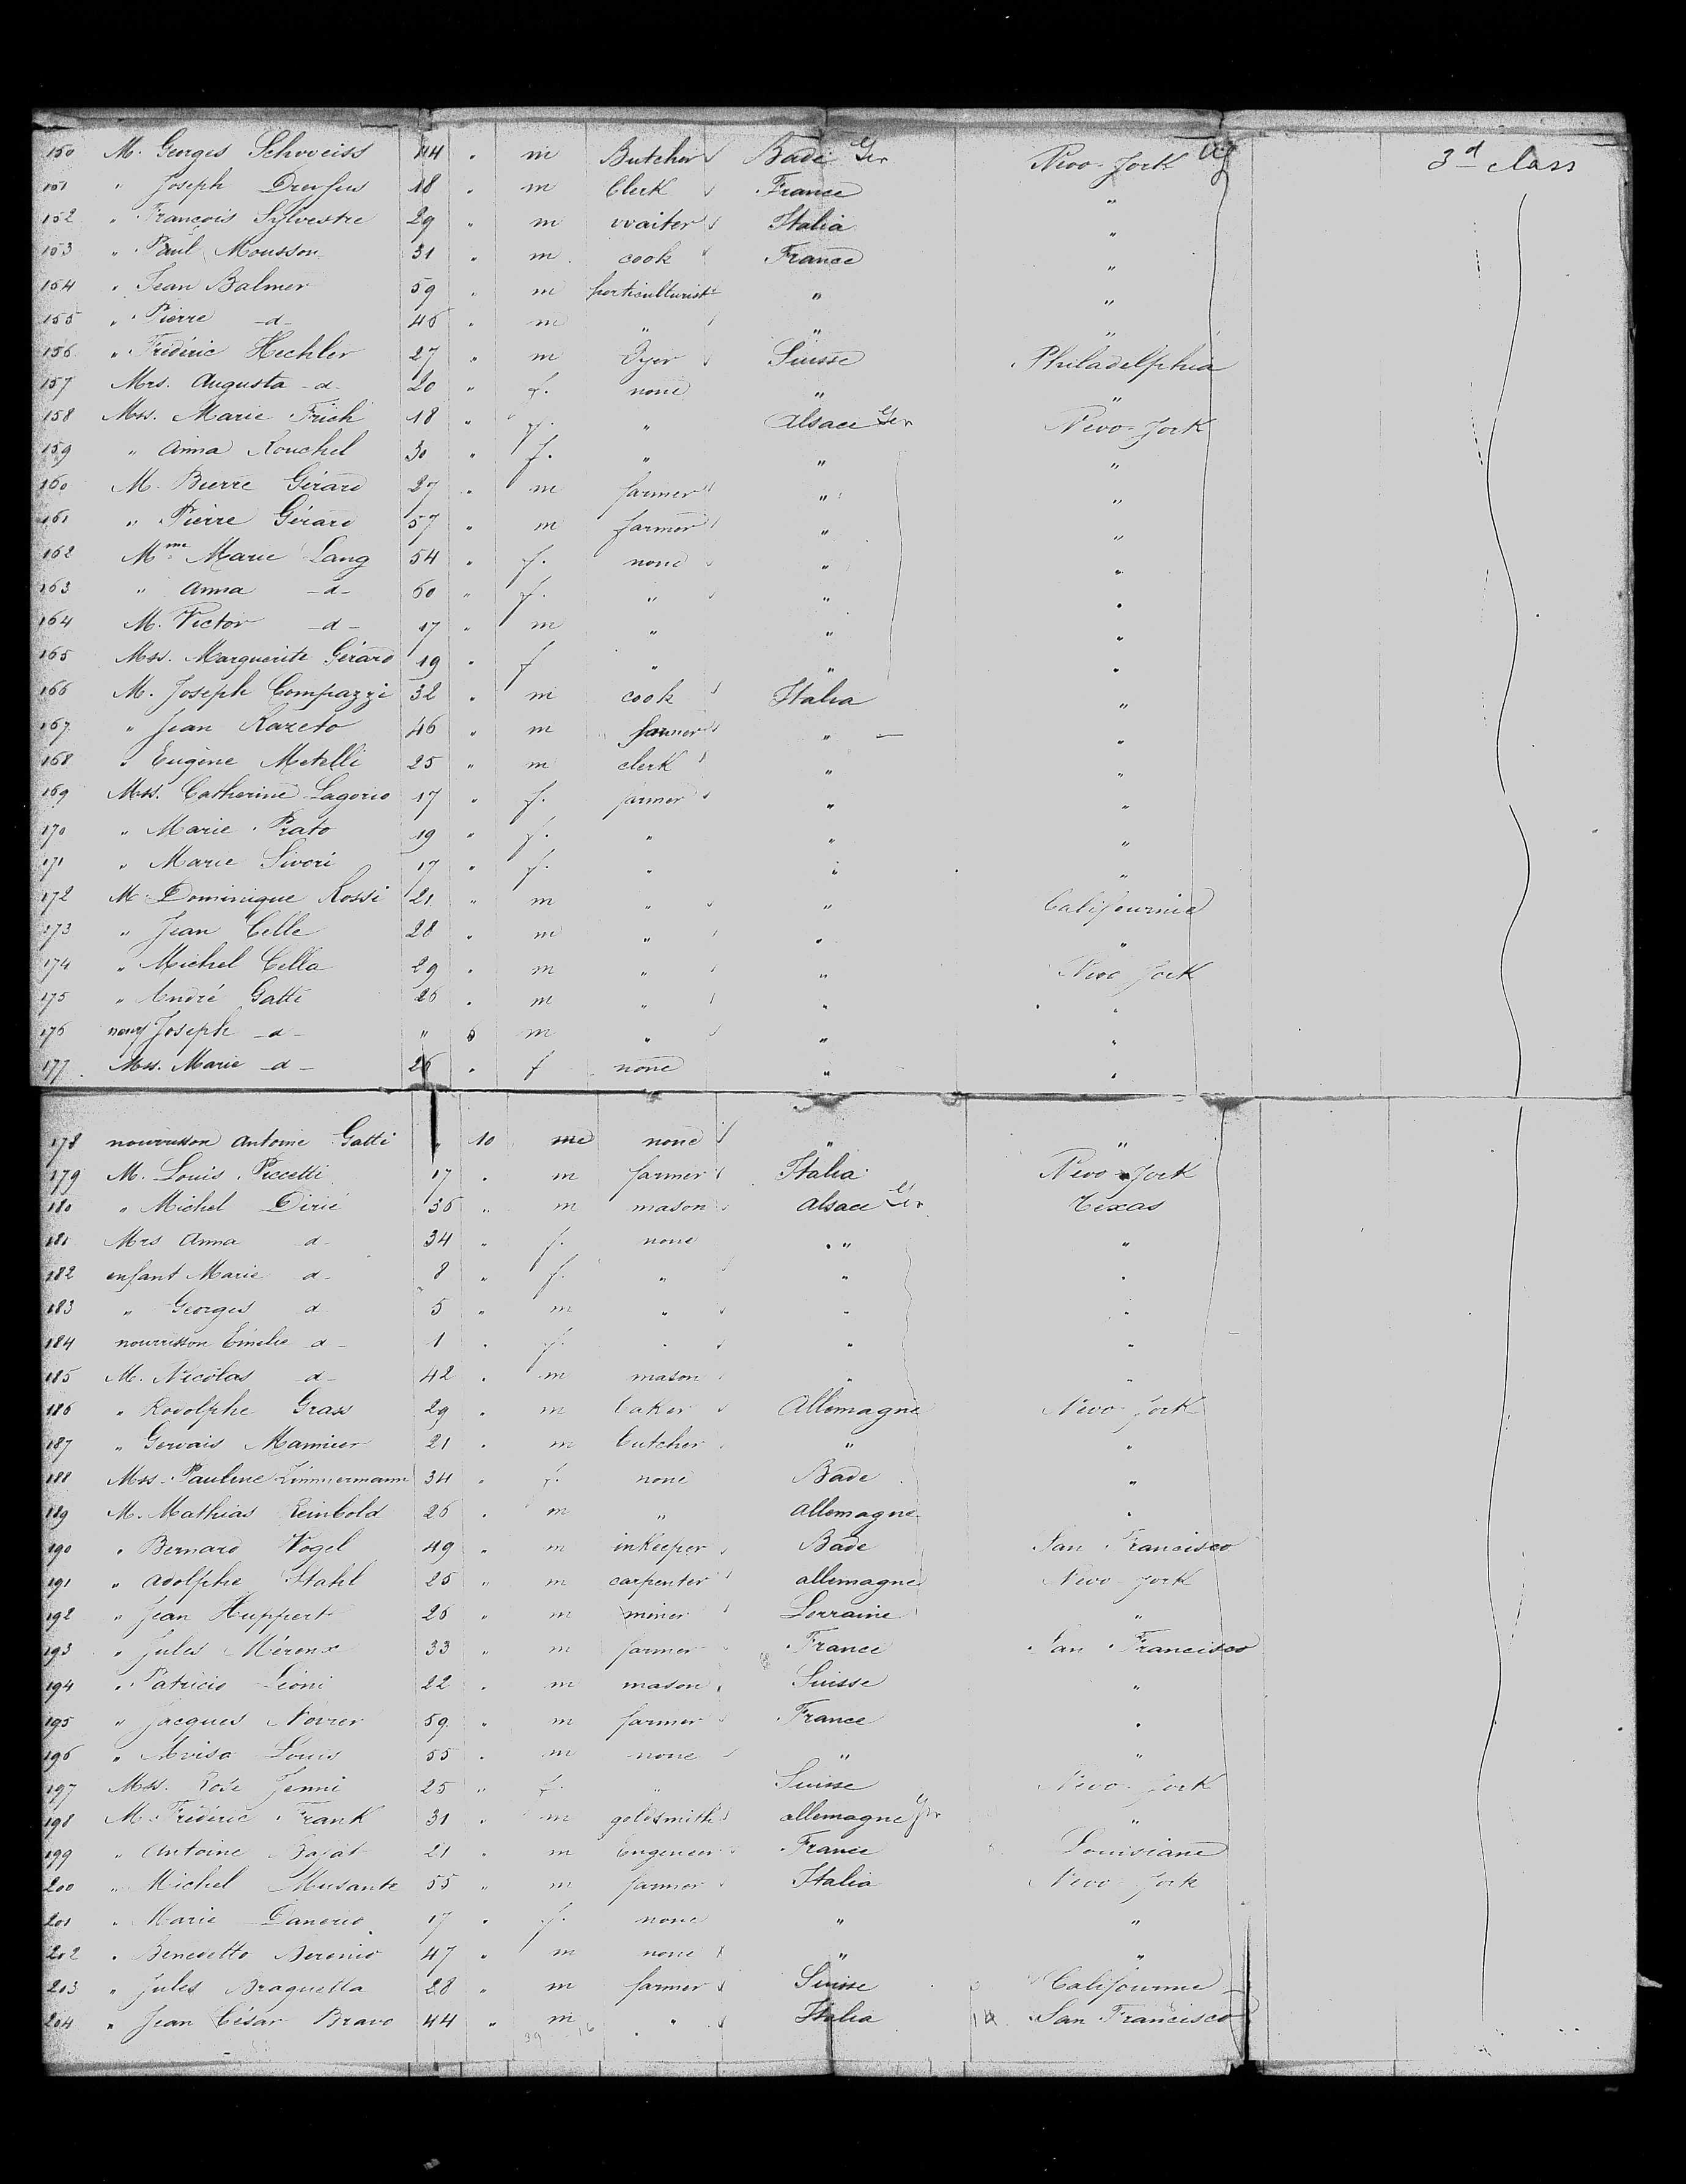 150 M. Georges Schweiss 44 " m Butcher Bade Ger New-York 3d class
151 " Joseph Dreyfus 18 " m Clerk France "
152 " François Sylvestre 29 " m waiter Italia "
153 " Paul Mousson 31 " m cook France "
154 " Jean Balmer 59 " m horticulturist " "
155 " Pierre -d- 46 " m " " "
156 " Frédéric Hechler 27 " m Dyer Suisse Philadelphia
157 Mrs. Augusta -d- 20 " f. none " "
158 Mss. Marie Frich 18 " f. " Alsace Ger New-York
159 " Anna Rouchel 30 " f. " " "
160 M. Pierre Gérard 27 " m farmer " "
161 " Pierre Gérard 57 " m farmer " "
162 Mme Marie Lang 54 " f. none " "
163 " Anna -d- 60 " f. " " "
164 M. Victor -d- 17 " m " " "
165 Mss. Marguerite Gérard 19 " f " " "
166 M. Joseph Compazzi 32 " m cook Italia "
167 " Jean Razeto 46 " m farmer " "
168 " Eugène Metelli 25 " m clerk " "
169 Mss. Catherine Lagorio 17 " f. farmer " "
170 " Marie Prato 19 " f. " " "
171 " Marie Sivori 17 " f. " " "
172 M. Dominique Rossi 21 " m " " Califournie
173 " Jean Celle 28 " m " " "
174 " Michel Cella 29 " m " " New York
175 " André Gatti 26 " m " " "
176 Joseph -d- " m " " "
177 Mss. Marie -d- 26 " f none " "
178 nourrisson Antoine Gatti " 10 m none " "
179 M. Louis Piccetti 17 " m farmer Italia New-York
180 " Michel Dirié 36 " m mason Alsace Ger Texas
181 Mrs Anna d- 34 " f. none " "
182 enfant Marie d- 8 " f. " " "
183 " Georges d 5 " m " " "
184 nourrisson Emélie d- 1 " f. " " "
185 M. Nicolas -d- 42 " m mason " "
186 " Rodolphe Grass 29 " m baker Allemagne New-York
187 " Gervais Mamier 21 " m butcher " "
188 Mss. Pauline Zimmermann 34 " f. none Bade "
189 M. Mathias Reinbold 26 " m " allemagne "
190 " Bernard Vogel 49 " m inkeeper Bade San Francisco
191 " Adolphe Stahl 25 " m carpenter allemagne New-York
192 " Jean Huppert 26 " m miner Lorraine "
193 " Jules Méroux 33 " m farmer France San Francisco
194 " Patricio Lioni 22 " m mason Suisse "
195 " Jacques Novier 59 " m farmer France "
196 " Louis 55 " m none " "
197 Mss. Rose Jenni 25 " f. " Suisse New-York
198 M. Frédéric Frank 31 " m goldsmith allemagne Ger "
199 " Antoine Bajat 21 " m Engeneer France Louisiane
200 " Michel Musante 55 " m farmer Italia New-York
201 " Marie Danerio 17 " f. none " "
202 " Benedetto 47 " m none " "
203 " Jules Braquetta 28 " m farmer Suisse Califournie
204 " Jean César Bravo 44 " m " Italia San Francisco